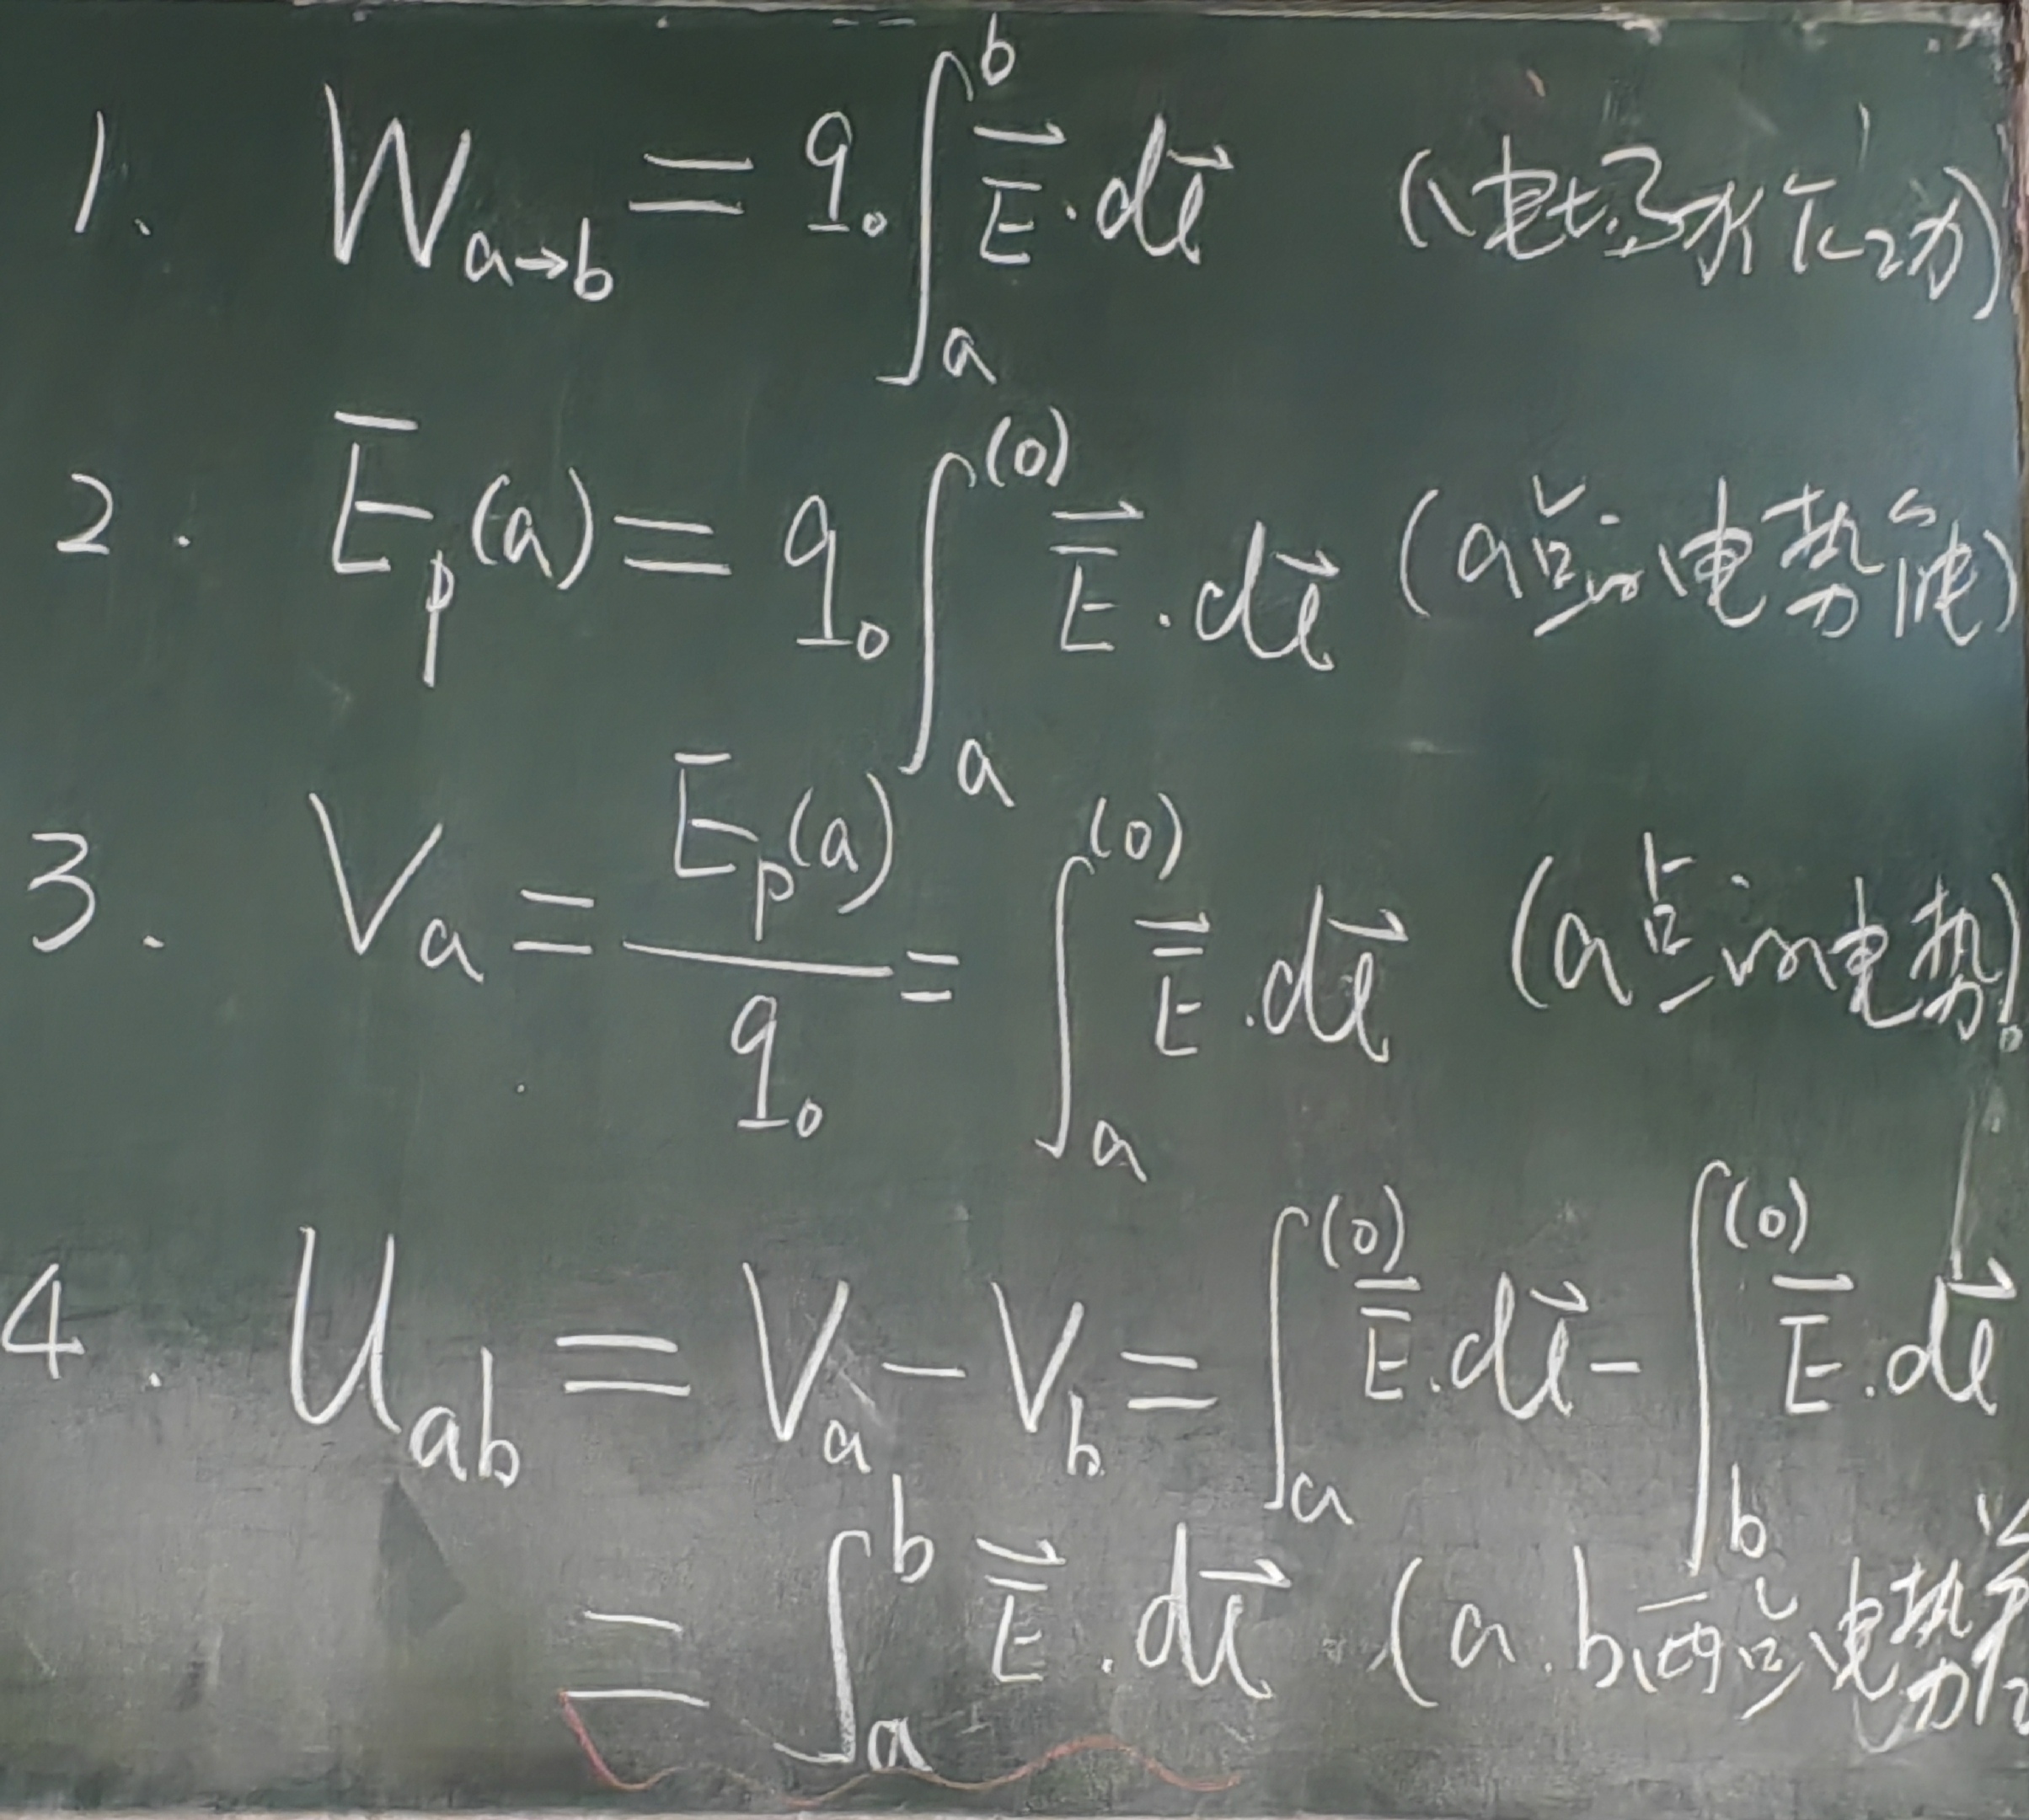 1. W_{a→b} = q_0 ∫_a^b \vec{E}·d\vec{l} (电场力作功)
2. E_p(a) = q_0 ∫_a^{(0)} \vec{E}·d\vec{l} (a点的电势能)
3. V_a = \frac{E_p(a)}{q_0} = ∫_a^{(0)} \vec{E}·d\vec{l} (a点的电势)
4. U_{ab} = V_a - V_b = ∫_a^{(0)} \vec{E}·d\vec{l} - ∫_b^{(0)} \vec{E}·d\vec{l}
= ∫_a^b \vec{E}·d\vec{l} (a.b两点电势差